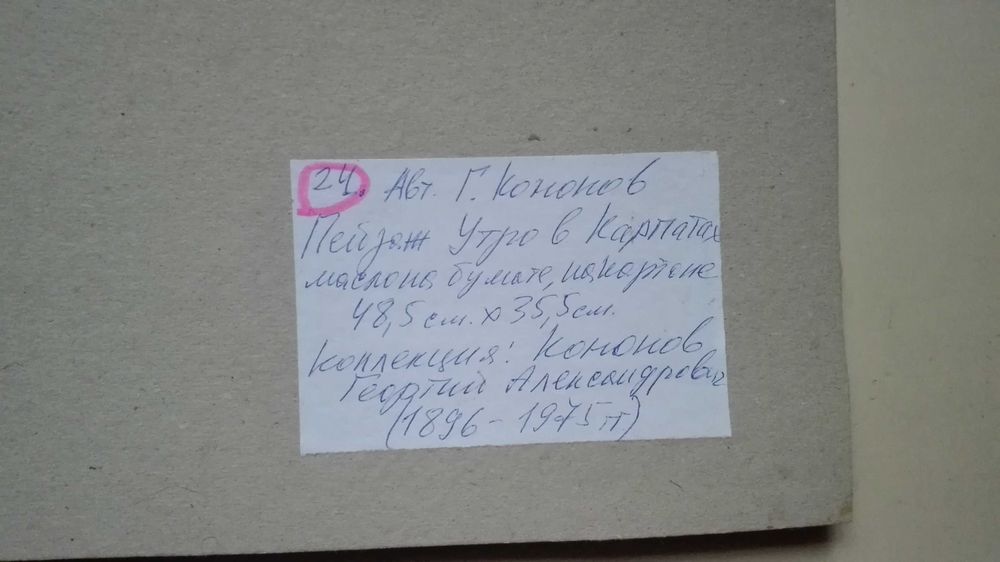 24. Авт. Г. Кононов
Пейзаж Утро в Карпатах
масло на бумаге, на картоне
48,5 см. х 35,5 см.
Коллекция: Кононов
Георгий Александрович
(1896 - 1975 гг)